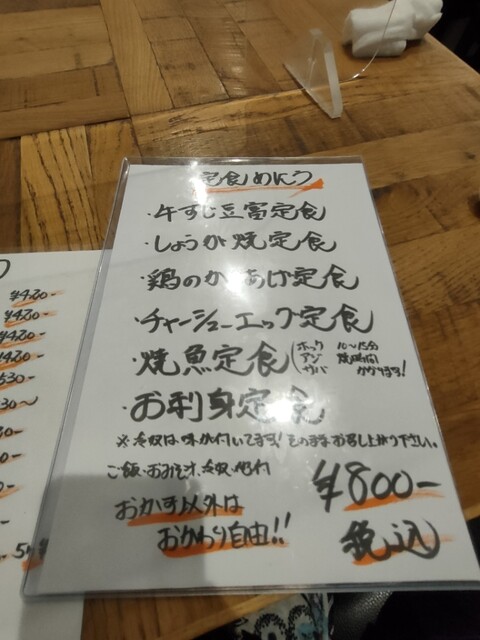 定食めにう
・牛すじ豆富定食
・しょうが焼定食
・鶏のからあげ定食
・チャーシューエッグ定食
・焼魚定食(ホッケ アジ サバ 10~15分 時間 かかります!
・お刺身定食
※冷奴は味が付いてます!そのままお召し上がり下さい。
ご飯・おみそ汁・冷奴・付
おかず以外は
おかわり自由!!
¥800-
税込
¥420-
¥420-
¥420-
¥420-
530-
30~